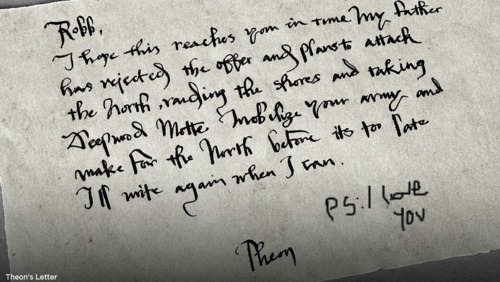 Robb,
I hope this reaches you in time My father
has rejected the offer and plans to attack
the North, raiding the shores and taking
Deepwood Motte. Mobelize your army and
make for the North before its too late
I'll write again when I can.
PS: I love
YOU
Theon
Theon's Letter